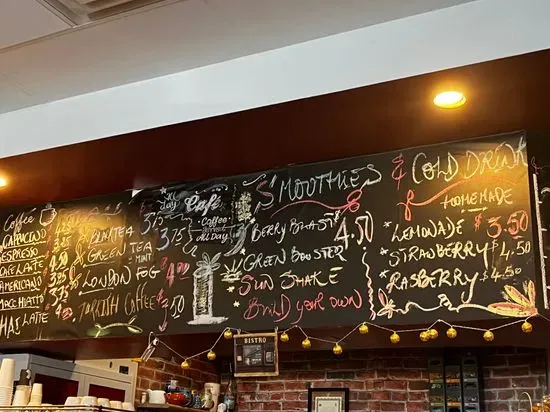 Coffee
CAPPUCINO
ESPRESSO
CAFE LATE
AMERICANO
MACCHIATO
CHAI LATTE
TEA 3.75
GREEN TEA 3.75
MINT
LONDON FOG 4
TURKISH COFFEE 3.50
all day
Café
Coffee
All Day
S'MOOTHIES
BERRY BLAST 4.50
GREEN BOOSTER
SUN SHAKE
BUILD YOUR OWN
& COLD DRINK
HOMEMADE
LEMONADE $3.50
STRAWBERRY $4.50
RASBERRY $4.50
BISTRO